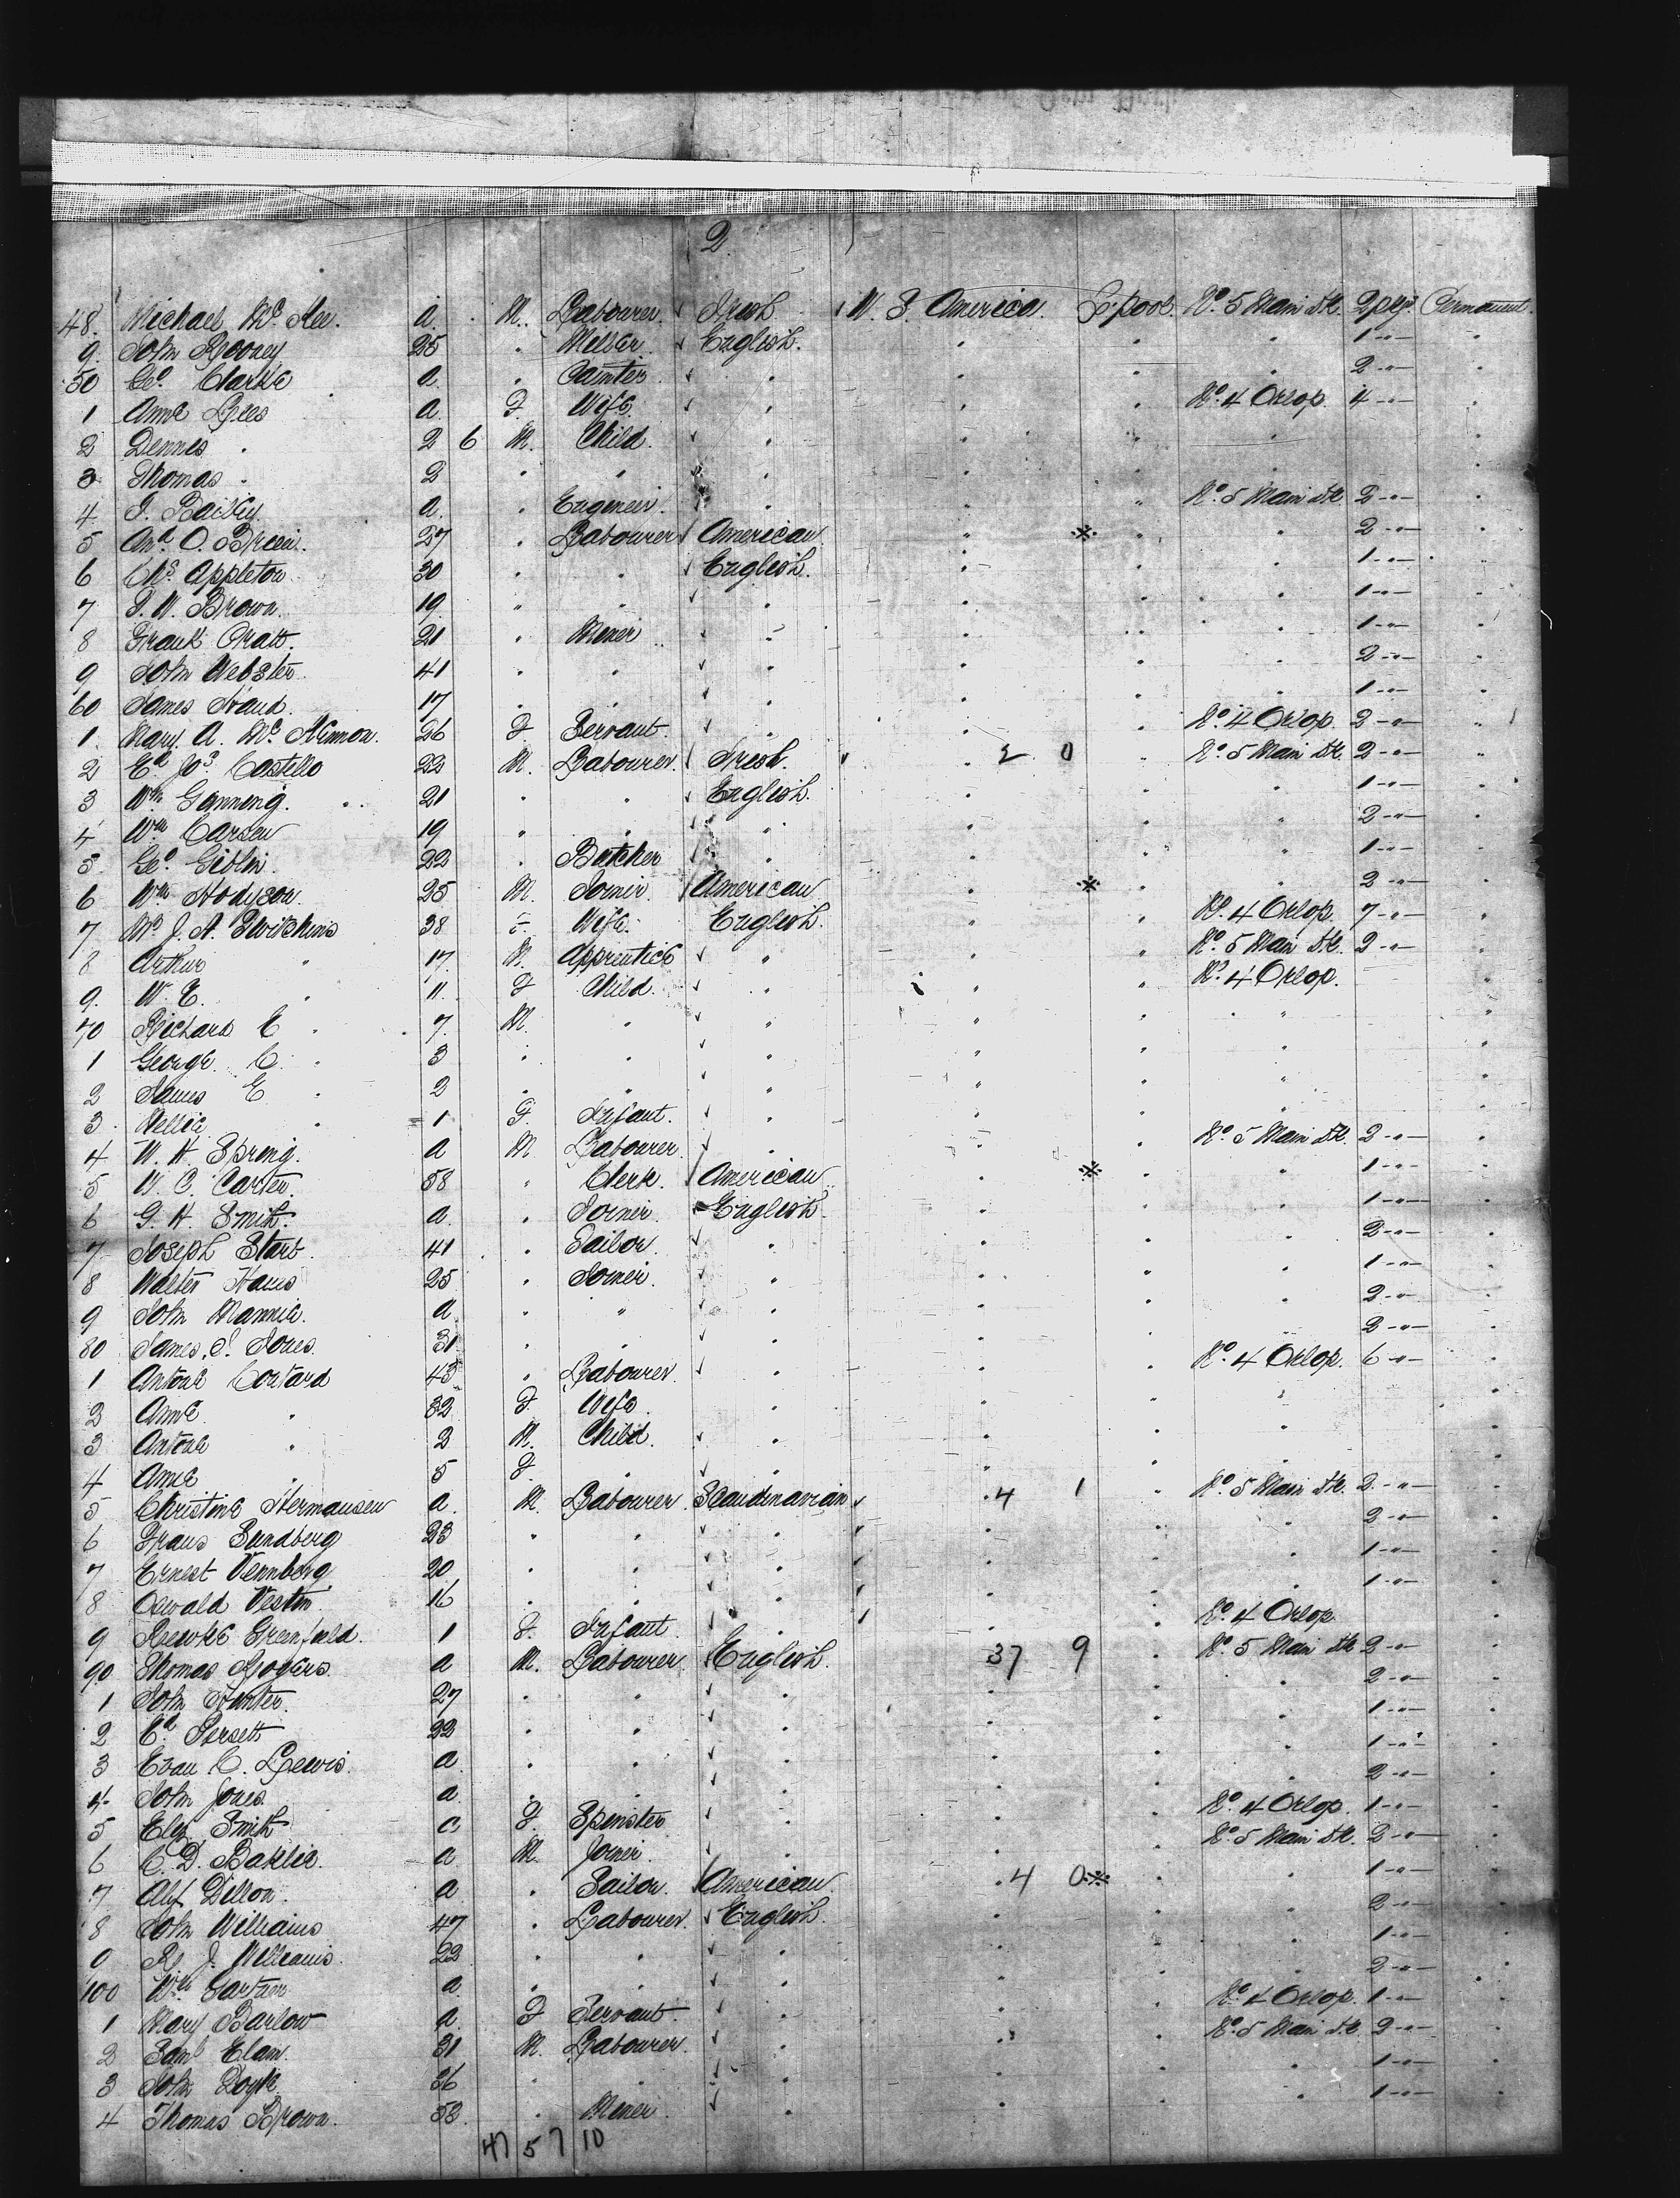 2
48. Michael Mc Kee. a. M. Labourer. Irish U. S. America. L'pool. No. 5 Main Dk. 2 pkgs. Permanent.
9. John Rooney 25 " Miller. English. " " " 1 -"- "
50 Geo. Clarke a. " Painter. " " " " 2 -"- "
1 Anne Lees a. F Wife. " " " No. 4 Orlop. 4 -"- "
2 Dennis " 2 6 M. Child. " " " "
3 Thomas " 2 " " " " "
4 J. Bailey. a. " Engineer. " " " No. 5 Main Dk. 2 -"- "
5 And. O. Brien. 27 " Labourer American " " " 2 -"- "
6 Chs. Appleton 30 " " English. " " " 1 -"- "
7 J. W. Brown. 19 " " " " " " 1 -"- "
8 Frank Pratt. 21 " Miner " " " " 1 -"- "
9 John Webster. 41 " " " " " " 2 -"- "
60 James 17 " " " " " " 1 -"- "
1. Mary. A. Mc Kinnon. 26 F Servant. " " " No. 4 Orlop. 2 -"- "
2 Ed. Jos. Costello 22 M. Labourer. Irish. " 2 0 " No. 5 Main Dk. 2 -"- "
3 Wm. Ganning. 21 " " English. " " " 1 -"- "
4 Wm Carsen 19 " " " " " " 2 -"- "
5. Geo. Giblin. 22 " Butcher " " " " 1 -"- "
6 Wm Hodyson. 25 M. Joiner. American " " " 2 -"- "
7 Mrs J. A. 38 F Wife. English. " " No. 4 Orlop. 7 -"- "
8 Arthur " 17. M. Apprentice " " " No. 5 Main Dk. 2 -"- "
9. W. E. " 11. F Child. " " " No. 4 Orlop. "
70 Richard E " 7. M. " " " " " "
1 George. C. " 3 " " " " " " "
2 James E " 2 " " " " " " "
3. Nellie " 1 F. Infant. " " " " "
4 W. H. Spring. a M. Labourer. " " " No. 5 Main Dk. 2 -"- "
5 W. C. Carter. 58 " Clerk. American " " " 1 -"- "
6 G. H. Smith. a. " Joiner. English " " " 1 -"- "
7 Joseph Starb. 41 " Sailor. " " " " 2 -"- "
8 Walter Haws 25 " Joiner. " " " " 1 -"- "
9 John Mannie. a. " " " " " " 2 -"- "
80 James. J. Jones. 31 " " " " " " 2 -"- "
1 Antone Contard 43 " Labourer. " " " No. 4 Orlop. 6 -"- "
2 Anne " 32 F. Wife. " " " " "
3 Antone " 2 M. Child. " " " " "
4 Anne " 5 F. " " " " " "
5 Christine Hermausen a. M. Labourer. Scandinavian " 4 1 " No. 5 Main Dk. 2 -"- "
6 Frans Sundberg 23 " " " " " " 2 -"- "
7 Ernest Vennberg 20 " " " " " " 1 -"- "
8 Oswald Vestin 16 " " " " " " 1 -"- "
9 Greenfeld. 1 F. Infant. " " " No. 4 Orlop
90 Thomas Rogers. a M. Labourer. English. 37 9 " No. 5 Main Dk 2 -"- "
1 John Hunter. 27 " " " " " " 2 -"- "
2 Ed. 22 " " " " " " 1 -"- "
3 Evan C. Lewis. a " " " " " " 1 -"- "
4. John Jones a. " " " " " " 2 -"- "
5 Eliz Smith a F. Spinster " " " No. 4 Orlop. 1 -"- "
6 C. D. a M. Joiner. " " " No. 5 Main Dk. 2 -"- "
7 Alf. Dillon. a " Sailor. American " 4 0 " " 1 -"- "
8 John Williams 47 " Labourer. English. " " " 2 -"- "
0 R. J. Williams. 22 " " " " " " 1 -"- "
100 Wm. a. " " " " " " 2 -"- "
1 Mary Barlow a. F Servant. " " " No. 4 Orlop. 1 -"- "
2 Saml Elam. 31 M. Labourer. " " " No. 5 Main Dk. 2 -"- "
3 John Doyle. 36 " " " " " " 1 -"- "
4 Thomas Brown. 52. " Miner. " " " " 1 -"- "
47 5 7 10